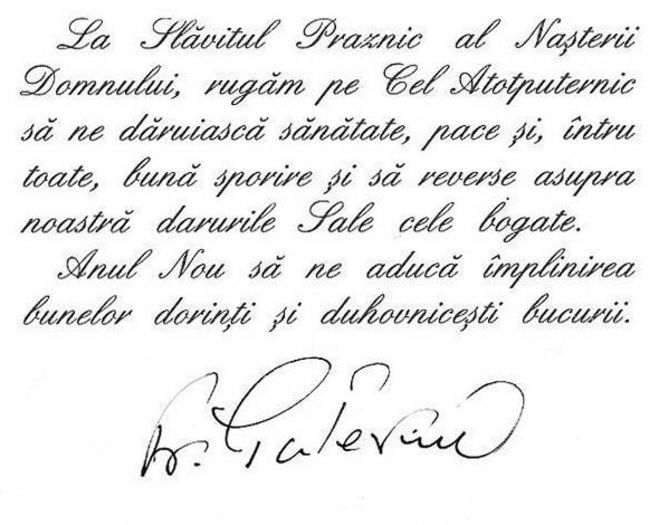 La Slăvitul Praznic al Nașterii
Domnului, rugăm pe Cel Atotputernic
să ne dăruiască sănătate, pace și, întru
toate, bună sporire și să reverse asupra
noastră darurile Sale cele bogate.
Anul Nou să ne aducă împlinirea
bunelor dorinți și duhovnicești bucurii.